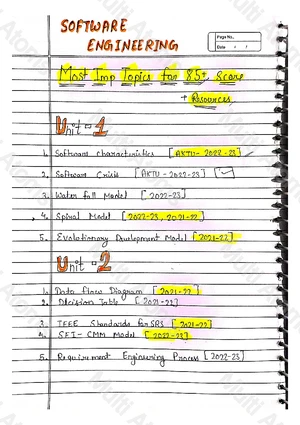 SOFTWARE
ENGINEERING
Page No.
Date / /
Most Imp Topics for 85+ Score
+ Resources
Unit - 1
1. Software characteristics [AKTU - 2022-23]
2. Software Crisis [AKTU - 2022-23]
3. Water fall Model [2022-23]
4. Spiral Model [2022-23, 2021-22]
5. Evolutionary Development Model [2021-22]
Unit - 2
1. Data flow Diagram [2021-22]
2. Decision Table [2021-22]
3. IEEE Standards for SRS [2021-22]
4. SEI - CMM Model [2022-23]
5. Requirement Engineering Process [2022-23]